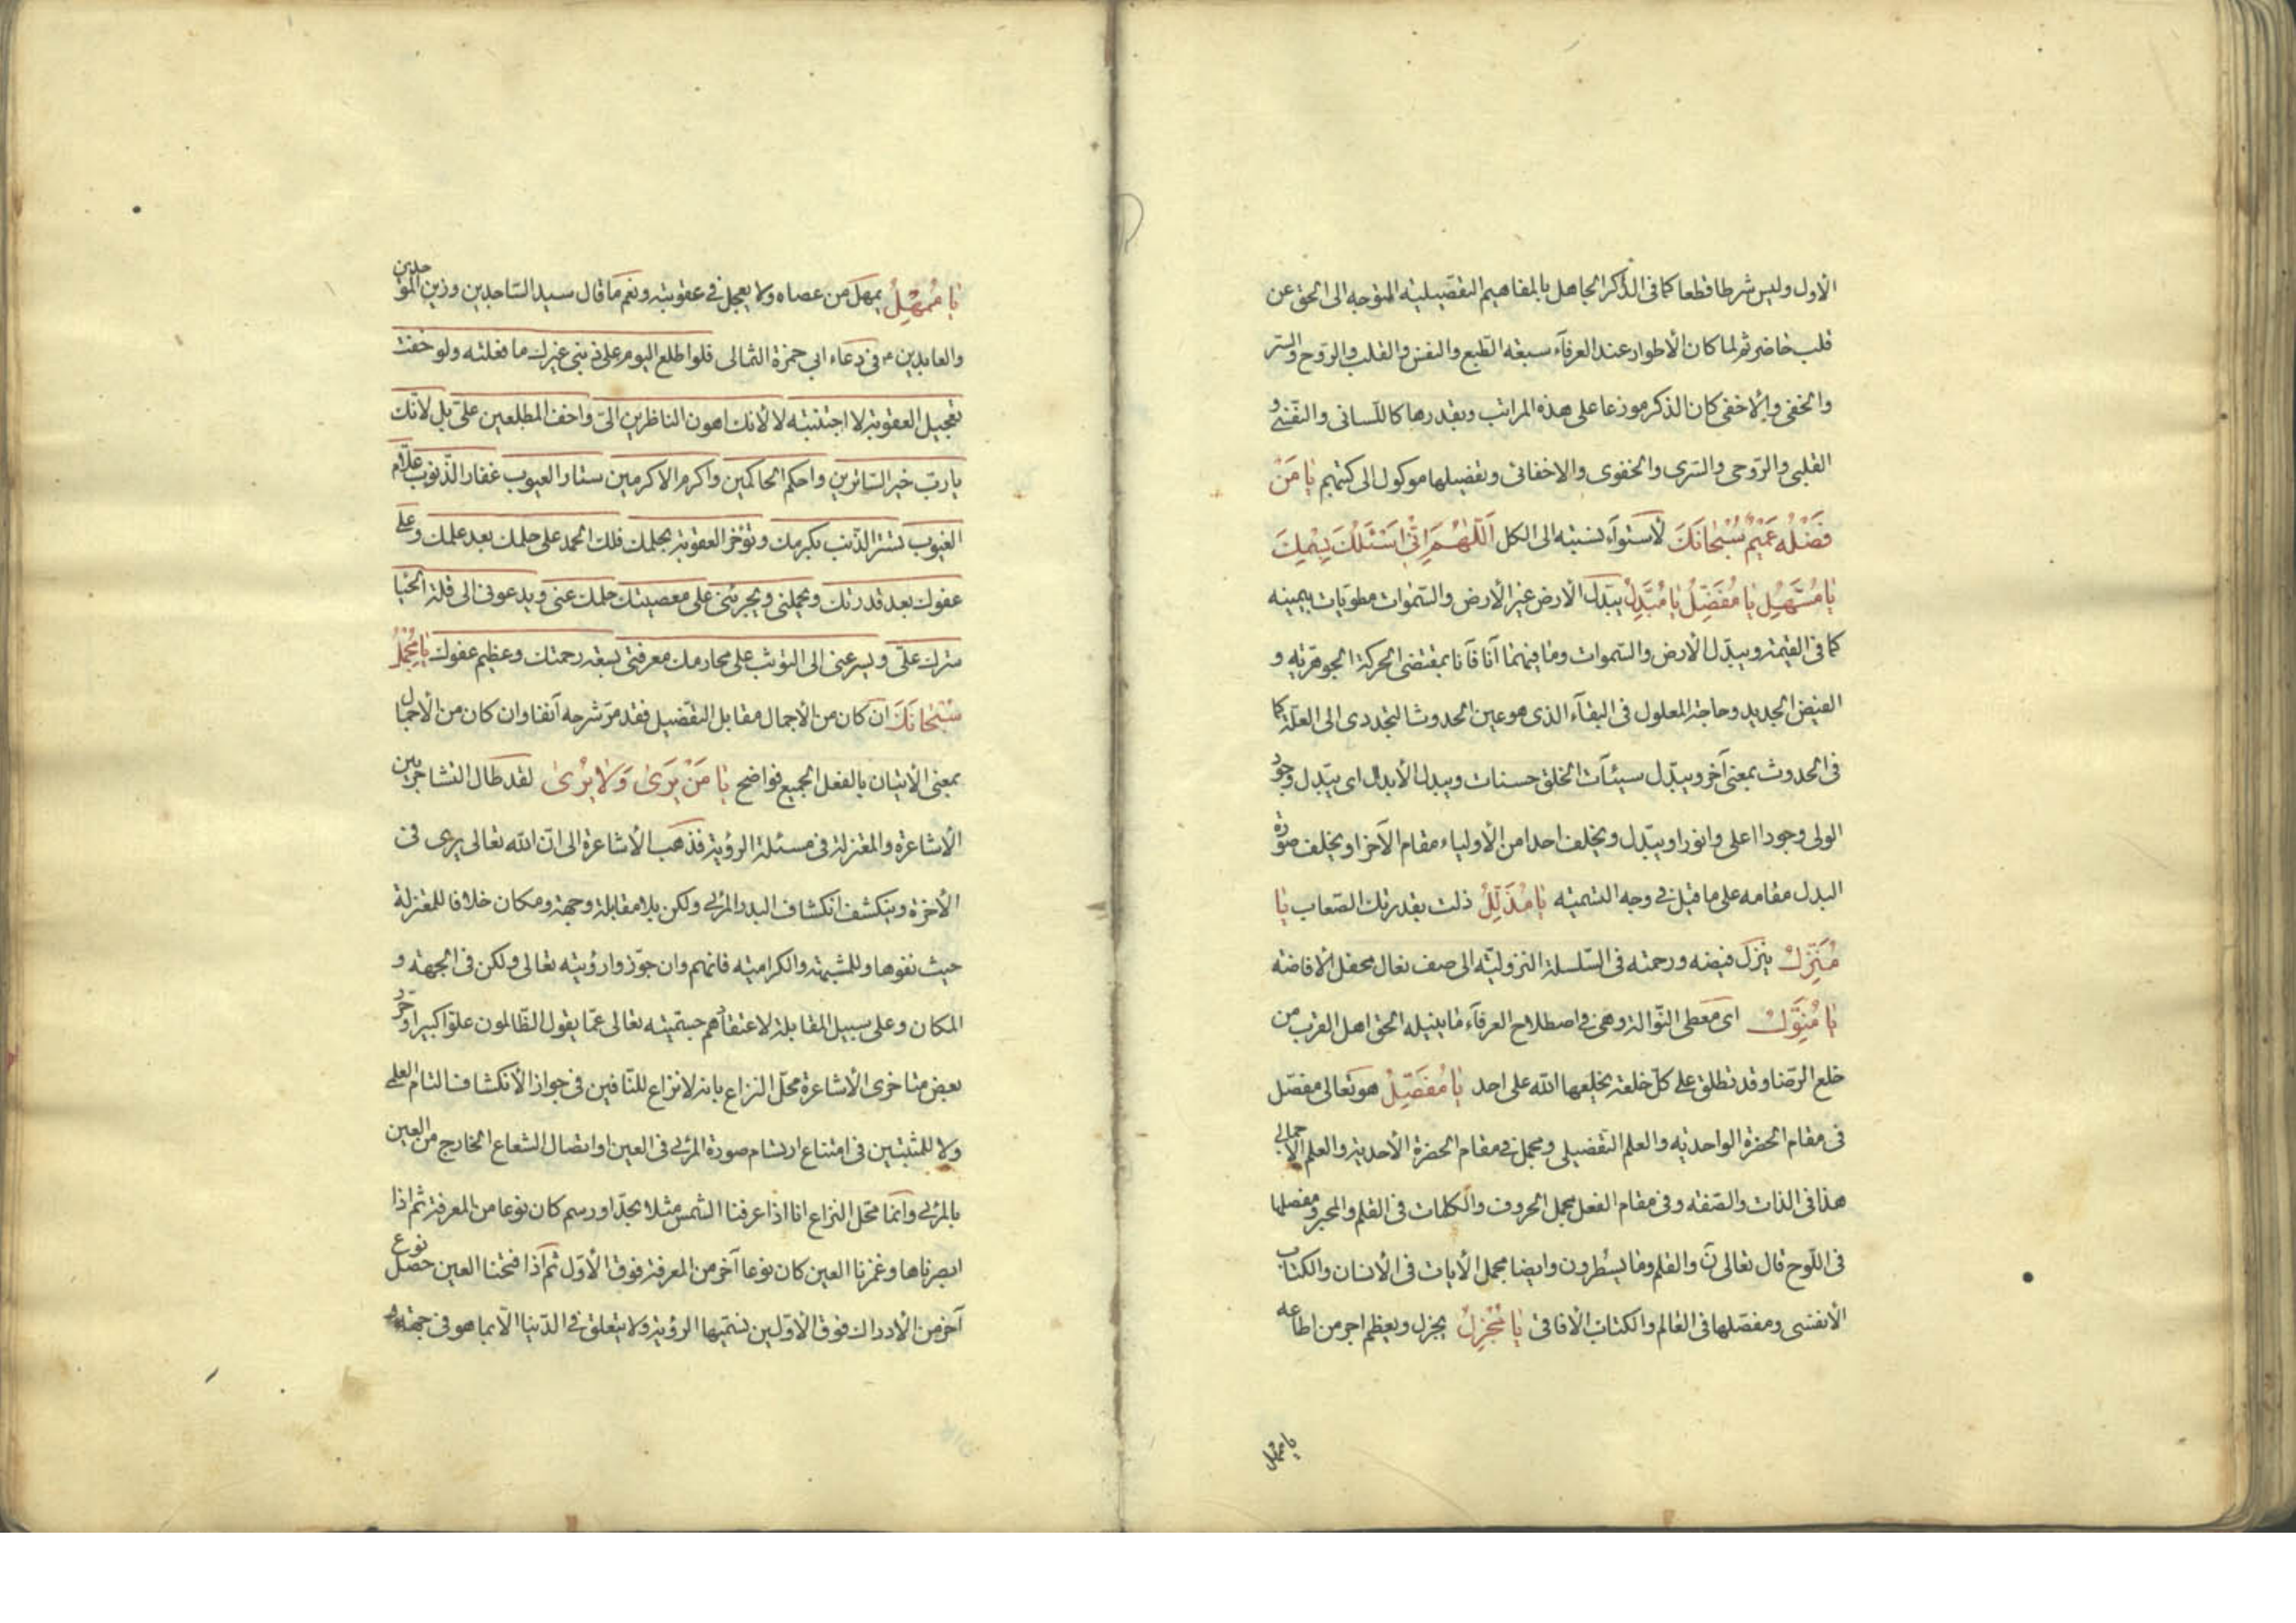 الاول وليس شرطا قطعا كما فى الذكر الجاهل بالمفاهيم التفصيلية المتوجه الى الحق عن
قلب حاضر ثم لما كان الأطوار عند العرفاء سبعة الطبع والنفس والقلب والروح والسر
والخفى والاخفى كان الذكر موزعا على هذه المراتب وبقدرها كاللسانى والنفسى و
القلبى والروحى والسرى والخفوى والاخفائى وتفصيلها موكول الى كتبهم يا مَنْ
فَضْلُه عَمِيْمٌ سُبْحَانَكَ لاستواء نسبته الى الكل اَللّهُمَّ اِنّى اَسْئَلُكَ بِاسْمِكَ
يا مُسَهِّلُ يا مُفَضِّلُ يا مُبَدِّلُ يبدل الأرض غير الأرض والسموات مطويات بيمينه
كما فى القيمة ويبدل الأرض والسموات وما فيهما آنا فآنا بمقتضى الحركة الجوهرية و
الفيض الجديد وحاجة المعلول فى البقاء الذى هو عين الحدوث التجددى الى العلة كما
فى الحدوث بمعنى آخر ويبدل سيئات الخلق حسنات ويبدل الأبدال اى يبدل وجود
الولى وجودا اعلى وانور او يبدل ويخلف احدا من الأولياء مقام الآخر او يخلف صورة
البدل مقامه على ما قيل فى وجه التسمية يا مُذَلِّلُ ذلت بقدرتك الصعاب يا
مُنَزِّلُ ينزل فيضه ورحمته فى السلسلة النزولية الى صف نعال محفل الافاضة
يا مُنَوِّلُ اى معطى النوالة وهى فى اصطلاح العرفاء ما ينيله الحق اهل القرب من
خلع الرضا وقد تطلق على كل خلعة يخلعها الله على احد يا مُفَصِّلُ هو تعالى مفصل
فى مقام الحضرة الواحدية والعلم التفصيلى ومجمل فى مقام الحضرة الأحدية والعلم الاجمالى
هذا فى الذات والصفة وفى مقام الفعل مجمل الحروف والكلمات فى القلم والمحبر ومفصلها
فى اللوح قال تعالى ن والقلم وما يسطرون وايضا مجمل الأيات فى الأنسان والكتاب
الأنفسى ومفصلها فى العالم والكتاب الآفاقى يا مُجْزِلُ يجزل ويعظم اجر من اطاعه
يا ممهل
يا مُمْهِلُ يمهل من عصاه ولا يعجل فى عقوبته ونعم ما قال سيد الساجدين وزين الموحدين
والعابدين فى دعاء ابى حمزة الثمالى فلو اطلع اليوم على ذنبى غيرك ما فعلته ولو خفت
تعجيل العقوبة لاجتنبته لا لأنك اهون الناظرين الىّ واخف المطلعين علىّ بل لأنك
يا رب خير الساترين واحكم الحاكمين واكرم الاكرمين ستار العيوب غفار الذنوب علام
الغيوب تستر الذنب بكرمك وتؤخر العقوبة بحلمك فلك الحمد على حلمك بعد علمك وعلى
عفوك بعد قدرتك ويحملنى ويجرئنى على معصيتك حلمك عنى ويدعونى الى قلة الحيا
سترك علىّ ويسرعنى الى التوثب على محارمك معرفتى بسعة رحمتك وعظيم عفوك يا مُجْمِلُ
سُبْحَانَكَ ان كان من الأجمال مقابل التفصيل فقد مر شرحه آنفا وان كان من الأجمال
بمعنى الأتيان بالفعل الجميع فواضح يا مَنْ يَرَى وَلا يُرى لقد طال التشاجر بين
الأشاعرة والمعتزلة فى مسئلة الرؤية فذهب الأشاعرة الى ان الله تعالى يرى فى
الأخرة وينكشف انكشاف البدر المرئى ولكن بلا مقابلة وجهة ومكان خلافا للمعتزلة
حيث نفوها وللمشبهة والكرامية فانهم وان جوزوا رؤيته تعالى ولكن فى الجهة و
المكان وعلى سبيل المقابلة لاعتقادهم جسميته تعالى عما يقول الظالمون علوا كبيرا وحرر
بعض متاخرى الأشاعرة محل النزاع بانه لا نزاع للنافين فى جواز الأنكشاف التام العلمى
ولا للمثبتين فى امتناع ارتسام صورة المرئى فى العين او اتصال الشعاع الخارج من العين
بالمرئى وانما محل النزاع انا اذا عرفنا الشمس مثلا بحد او رسم كان نوعا من المعرفة ثم اذا
ابصرناها وغمزنا العين كان نوعا آخر من المعرفة فوق الأول ثم اذا فتحنا العين حصل نوع
آخر من الأدراك فوق الأولين نسميها الرؤية ولا يتعلق فى الدنيا الا بما هو فى جهة